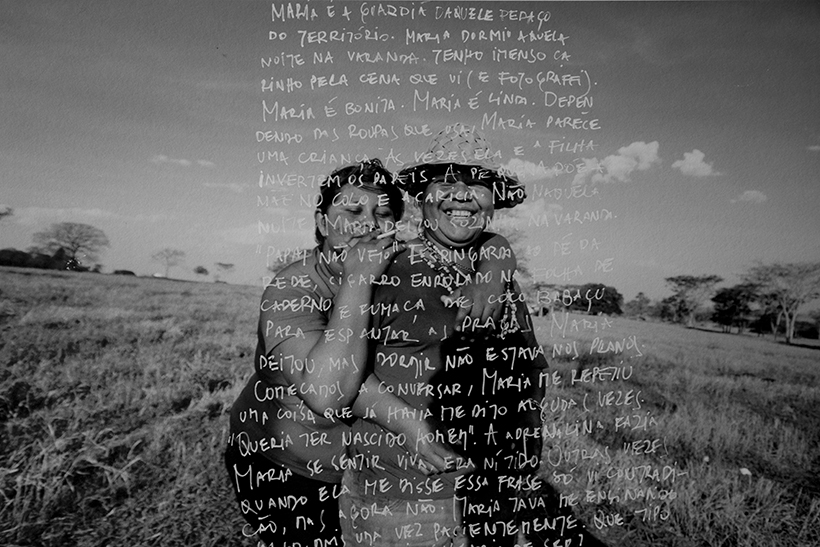 MARIA É A GUARDIÃ DAQUELE PEDAÇO
DO TERRITÓRIO. MARIA DORMIO AQUELA
NOITE NA VARANDA. TENHO IMENSO CA
RINHO PELA CENA QUE VI (E FOTOGRAFEI).
MARIA É BONITA. MARIA É LINDA. DEPEN
DENDO DAS ROUPAS QUE USA, MARIA PARECE
UMA CRIANÇA. ÀS VEZES ELA E A FILHA
INVERTEM OS PAPÉIS. A
MÃE NO COLO E A ACARICIA. NÃO NAQUELA
NOITE. MARIA DEITOU SOZINHA NA VARANDA.
"PAPAI NÃO VEIO". ESPINGARDA AO PÉ DA
REDE, CIGARRO ENROLADO NA FOLHA DE
CADERNO E FUMAÇA DE COCO BABAÇU
PARA ESPANTAR AS PRAGAS. MARIA
DEITOU, MAS DORMIR NÃO ESTAVA NOS PLANOS.
COMEÇAMOS A CONVERSAR, MARIA ME REPETIU
UMA COISA QUE JÁ HAVIA ME DITO ALGUMAS VEZES.
"QUERIA TER NASCIDO HOMEM". A ADRENALINA FAZIA
MARIA SE SENTIR VIVA, ERA NÍTIDO. OUTRAS VEZES
QUANDO ELA ME DISSE ESSA FRASE SÓ VI CONTRADI-
ÇÃO, MAS AGORA NÃO. MARIA TAVA ME ENSINANDO
MAIS UMA VEZ PACIENTEMENTE. QUE TIPO
DE SER?